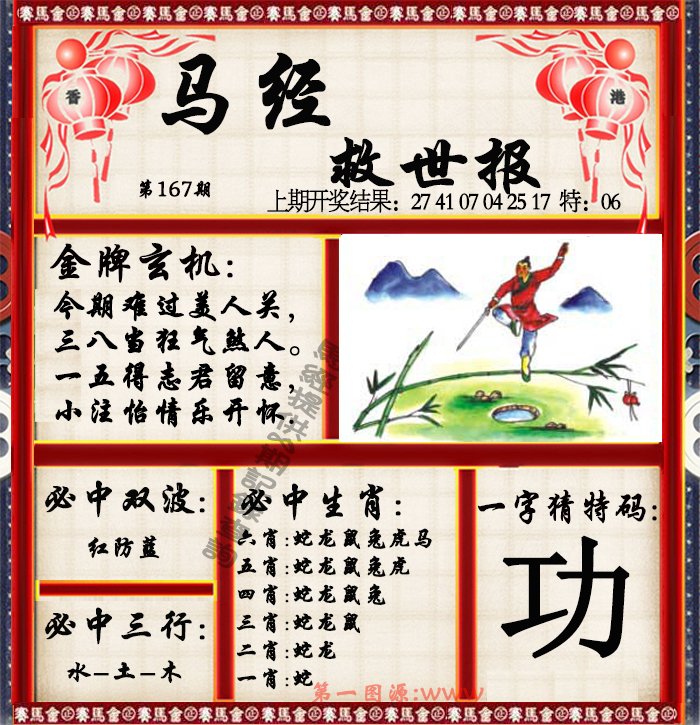 香
港
马经
救世报
第167期
上期开奖结果：27 41 07 04 25 17 特：06
金牌玄机：
今期难过美人关，
三八当狂气煞人。
一五得志君留意，
小注怡情乐开怀．
必中双波：
红防蓝
必中三行：
水－土－木
必中生肖：
六肖:蛇龙鼠兔虎马
五肖:蛇龙鼠兔虎
四肖:蛇龙鼠兔
三肖:蛇龙鼠
二肖:蛇龙
一肖:蛇
一字猜特码：
功
第一图源:www